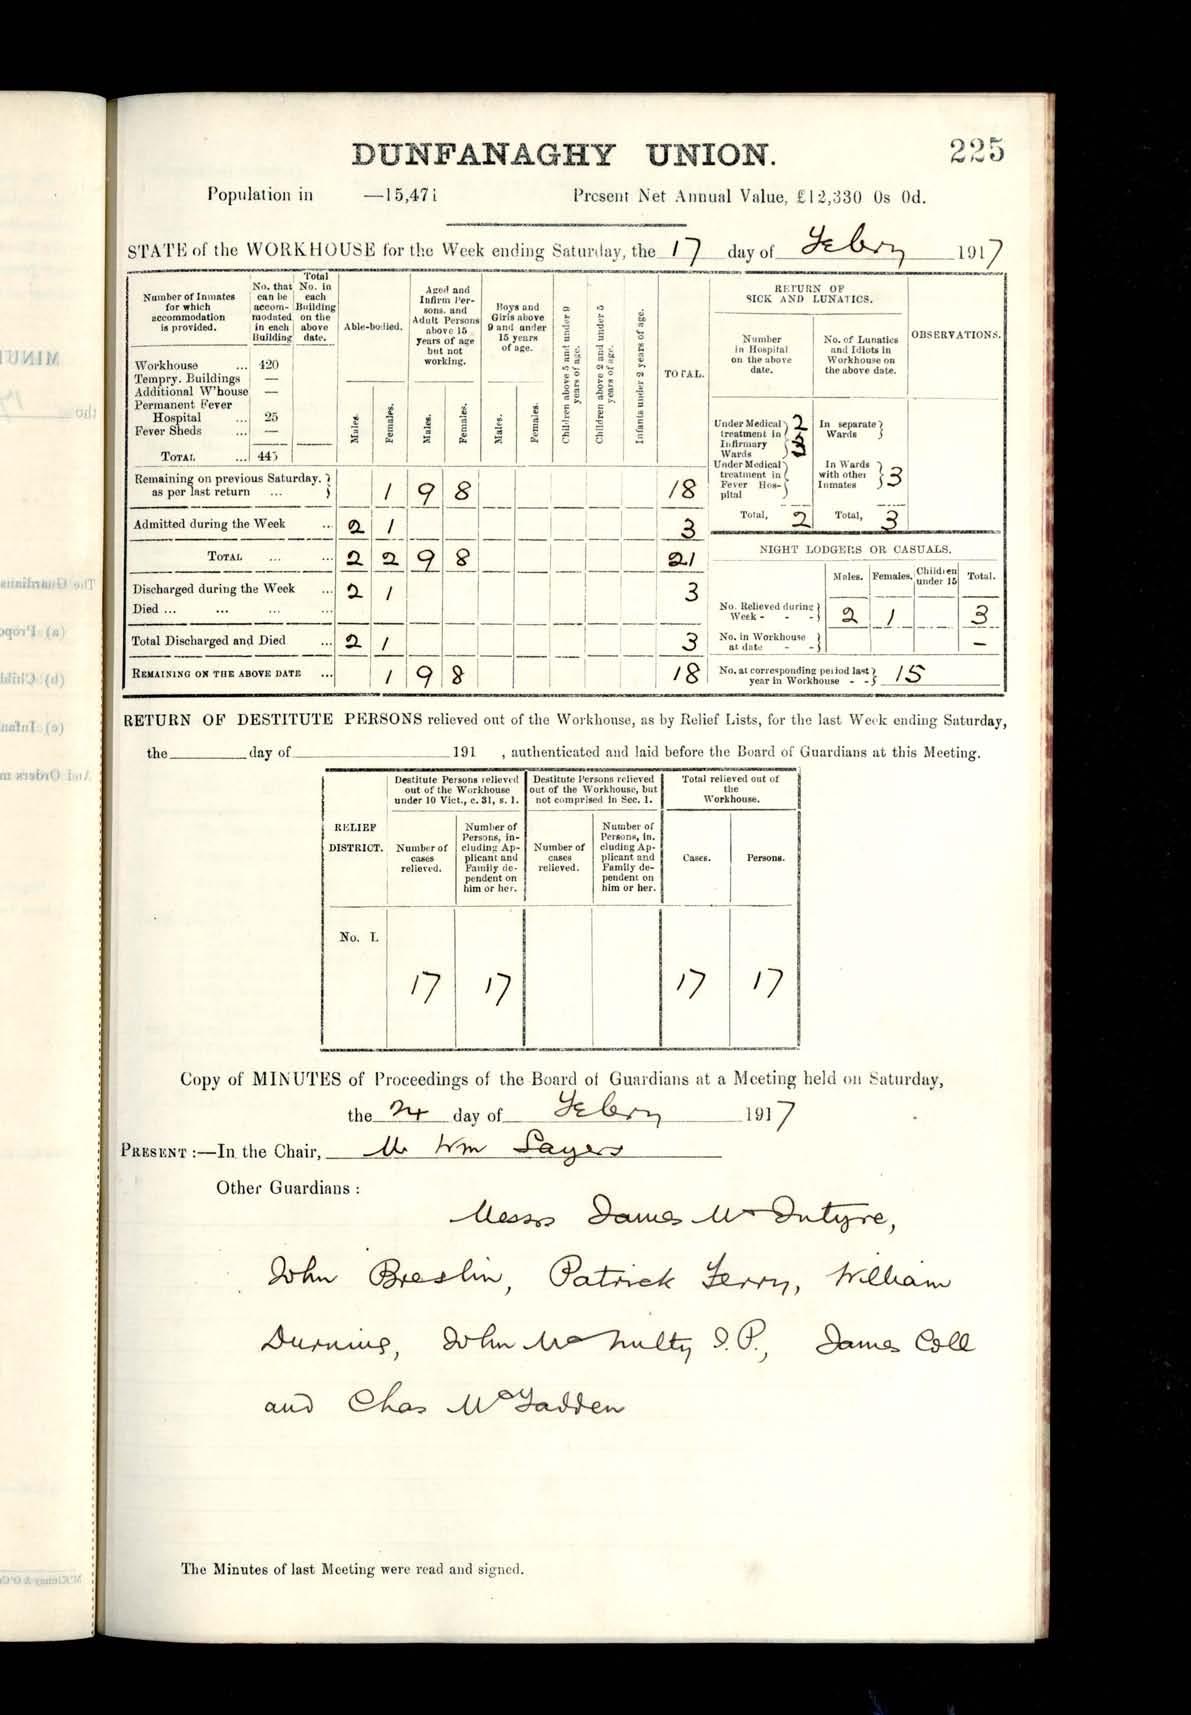 225
DUNFANAGHY UNION.
Population in —15,471 Present Net Annual Value, £12,330 0s 0d.
STATE of the WORKHOUSE for the Week ending Saturday, the 17 day of Febry 1917
Number of Inmates for which accommodation is provided.
No. that can be accom-modated in each Building
Total No. in each Building on the above date.
Able-bodied.
Aged and Infirm Per-sons. and Adult Persons above 15 years of age but not working.
Boys and Girls above 9 and under 15 years of age.
Children above 5 and under 9 years of age.
Children above 2 and under 5 years of age.
Infants under 2 years of age.
TOTAL.
RETURN OF SICK AND LUNATICS.
Number in Hospital on the above date.
No. of Lunatics and Idiots in Workhouse on the above date.
OBSERVATIONS.
Males. Females. Males. Females. Males. Females.
Workhouse ... 420
Tempry. Buildings —
Additional W'house —
Permanent Fever
Hospital ... 25
Fever Sheds ... —
TOTAL ... 445
Under Medical treatment in Infirmary Wards } 2
In separate Wards }
Under Medical treatment in Fever Hos-pital }
In Wards with other Inmates } 3
Total, 2 Total, 3
Remaining on previous Saturday. as per last return ... } 1 9 8 18
Admitted during the Week ... 2 1 3
TOTAL ... ... 2 2 9 8 21
Discharged during the Week ... 2 1 3
Died ... ... ... ...
Total Discharged and Died ... 2 1 3
REMAINING ON THE ABOVE DATE ... 1 9 8 18
NIGHT LODGERS OR CASUALS.
Males. Females. Children under 15 Total.
No. Relieved during Week - - - } 2 1 3
No. in Workhouse at date - - } —
No. at corresponding period last year in Workhouse - - } 15
RETURN OF DESTITUTE PERSONS relieved out of the Workhouse, as by Relief Lists, for the last Week ending Saturday,
the day of 191 , authenticated and laid before the Board of Guardians at this Meeting.
RELIEF DISTRICT.
Destitute Persons relieved out of the Workhouse under 10 Vict., c. 31, s. 1.
Destitute Persons relieved out of the Workhouse, but not comprised in Sec. 1.
Total relieved out of the Workhouse.
Number of cases relieved.
Number of Persons, in-cluding Ap-plicant and Family de-pendent on him or her.
Number of cases relieved.
Number of Persons, in-cluding Ap-plicant and Family de-pendent on him or her.
Cases. Persons.
No. I.
17 17 17 17
Copy of MINUTES of Proceedings of the Board of Guardians at a Meeting held on Saturday,
the 24 day of Febry 1917
PRESENT :—In the Chair, Mr Wm Sayers
Other Guardians :
Messrs James McIntyre,
John Breslin, Patrick Ferry, William
Durning, John McNulty J.P., James Coll
and Chas McFadden
The Minutes of last Meeting were read and signed.